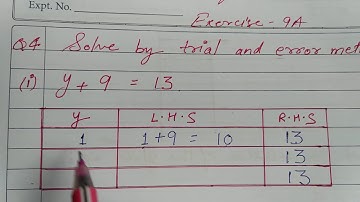 Expt. No.
Exercise - 9A
Q4. Solve by trial and error met
(i) y + 9 = 13.
y L.H.S R.H.S
1 1+9 = 10 13
13
13